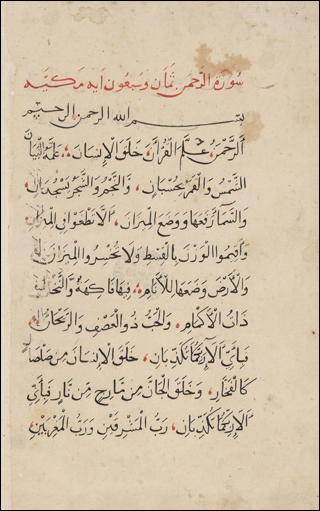 سورة الرحمن ثمان وسبعون آيه مكيه
بسم الله الرحمن الرحيم
اَلرَّحْمٰنُ عَلَّمَ الْقُرْآنَ خَلَقَ الْاِنْسَانَ عَلَّمَهُ الْبَيَانَ
اَلشَّمْسُ وَالْقَمَرُ بِحُسْبَانٍ وَالنَّجْمُ وَالشَّجَرُ يَسْجُدَانِ
وَالسَّمَآءَ رَفَعَهَا وَوَضَعَ الْمِيزَانَ اَلَّا تَطْغَوْا فِي الْمِيزَانِ
وَاَقِيمُوا الْوَزْنَ بِالْقِسْطِ وَلَا تُخْسِرُوا الْمِيزَانَ
وَالْاَرْضَ وَضَعَهَا لِلْاَنَامِ فِيهَا فَاكِهَةٌ وَالنَّخْلُ
ذَاتُ الْاَكْمَامِ وَالْحَبُّ ذُو الْعَصْفِ وَالرَّيْحَانُ
فَبِاَيِّ اٰلَآءِ رَبِّكُمَا تُكَذِّبَانِ خَلَقَ الْاِنْسَانَ مِنْ صَلْصَالٍ
كَالْفَخَّارِ وَخَلَقَ الْجَانَّ مِنْ مَارِجٍ مِنْ نَارٍ فَبِاَيِّ
اٰلَآءِ رَبِّكُمَا تُكَذِّبَانِ رَبُّ الْمَشْرِقَيْنِ وَرَبُّ الْمَغْرِبَيْنِ